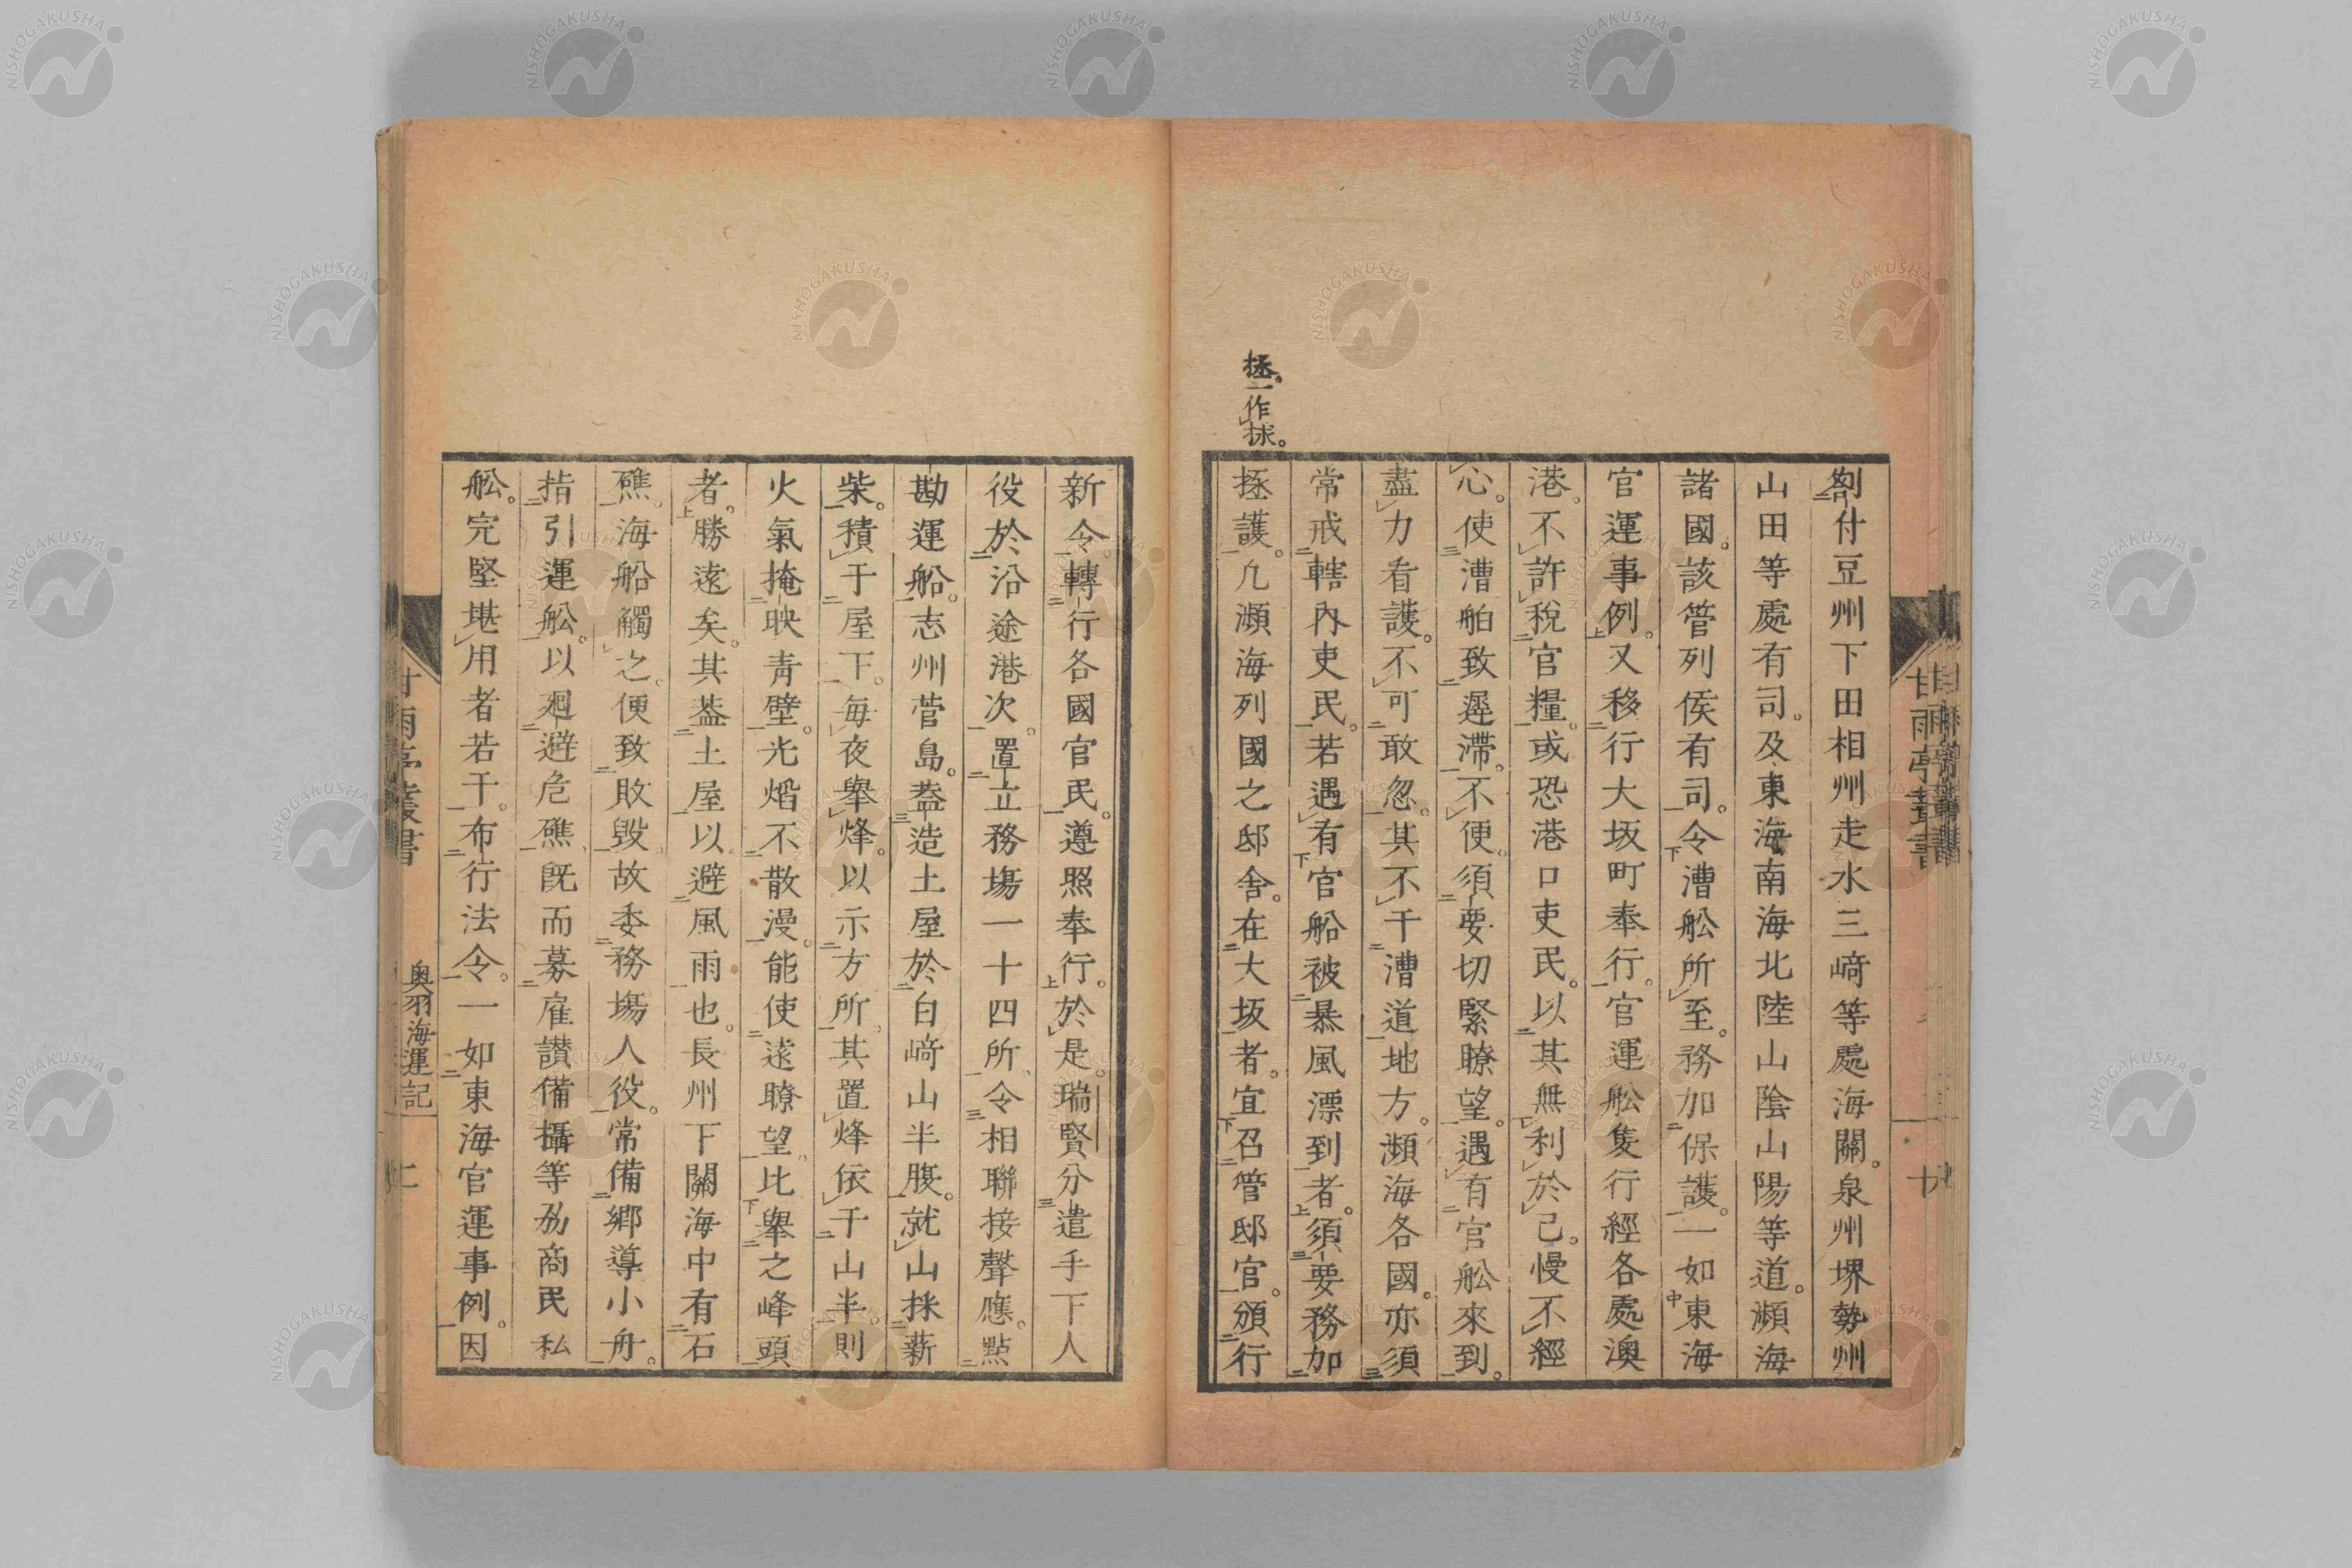 拯。一作
捄。
劄付豆州下田相州走水三﨑等處海關。泉州堺勢州
山田等處有司。及東海南海北陸山陰山陽等道。瀕海
諸國。該管列侯有司。令漕舩所至。務加保護。一如東海
官運事例。又移行大坂町奉行。官運舩隻行經各處澳
港。不許稅官糧。或恐港口吏民。以其無利於己。慢不經
心。使漕舶致遲滯。不便。須要切緊瞭望。遇有官舩來到。
盡力看護。不可敢忽。其不干漕道地方。瀕海各國。亦須
常戒轄內吏民。若遇有官船被暴風漂到者。須要務加
拯護。凢瀕海列國之邸舍。在大坂者。宜召管邸官。頒行
新令轉行各國官民。遵照奉行。於是。瑞賢分遣手下人
役於沿途港次。置立務塲一十四所。令相聯接聲應。點
勘運船。志州菅島。葢造土屋於白﨑山半腹。就山採薪
柴。積于屋下。每夜舉烽。以示方所。其置烽依于山半。則
火氣掩映青壁。光熖不散漫。能使遠瞭望。比舉之峰頭
者。勝遠矣。其葢土屋。以避風雨也。長州下關海中有石
礁。海船觸之。便致敗毀。故委務塲人役。常備鄉導小舟。
指引運舩。以廻避危礁。既而募雇讚備攝等劦商民私
舩。完堅堪用者若干。布行法令。一如東海官運事例。因
甘雨亭叢書
奥羽海運記